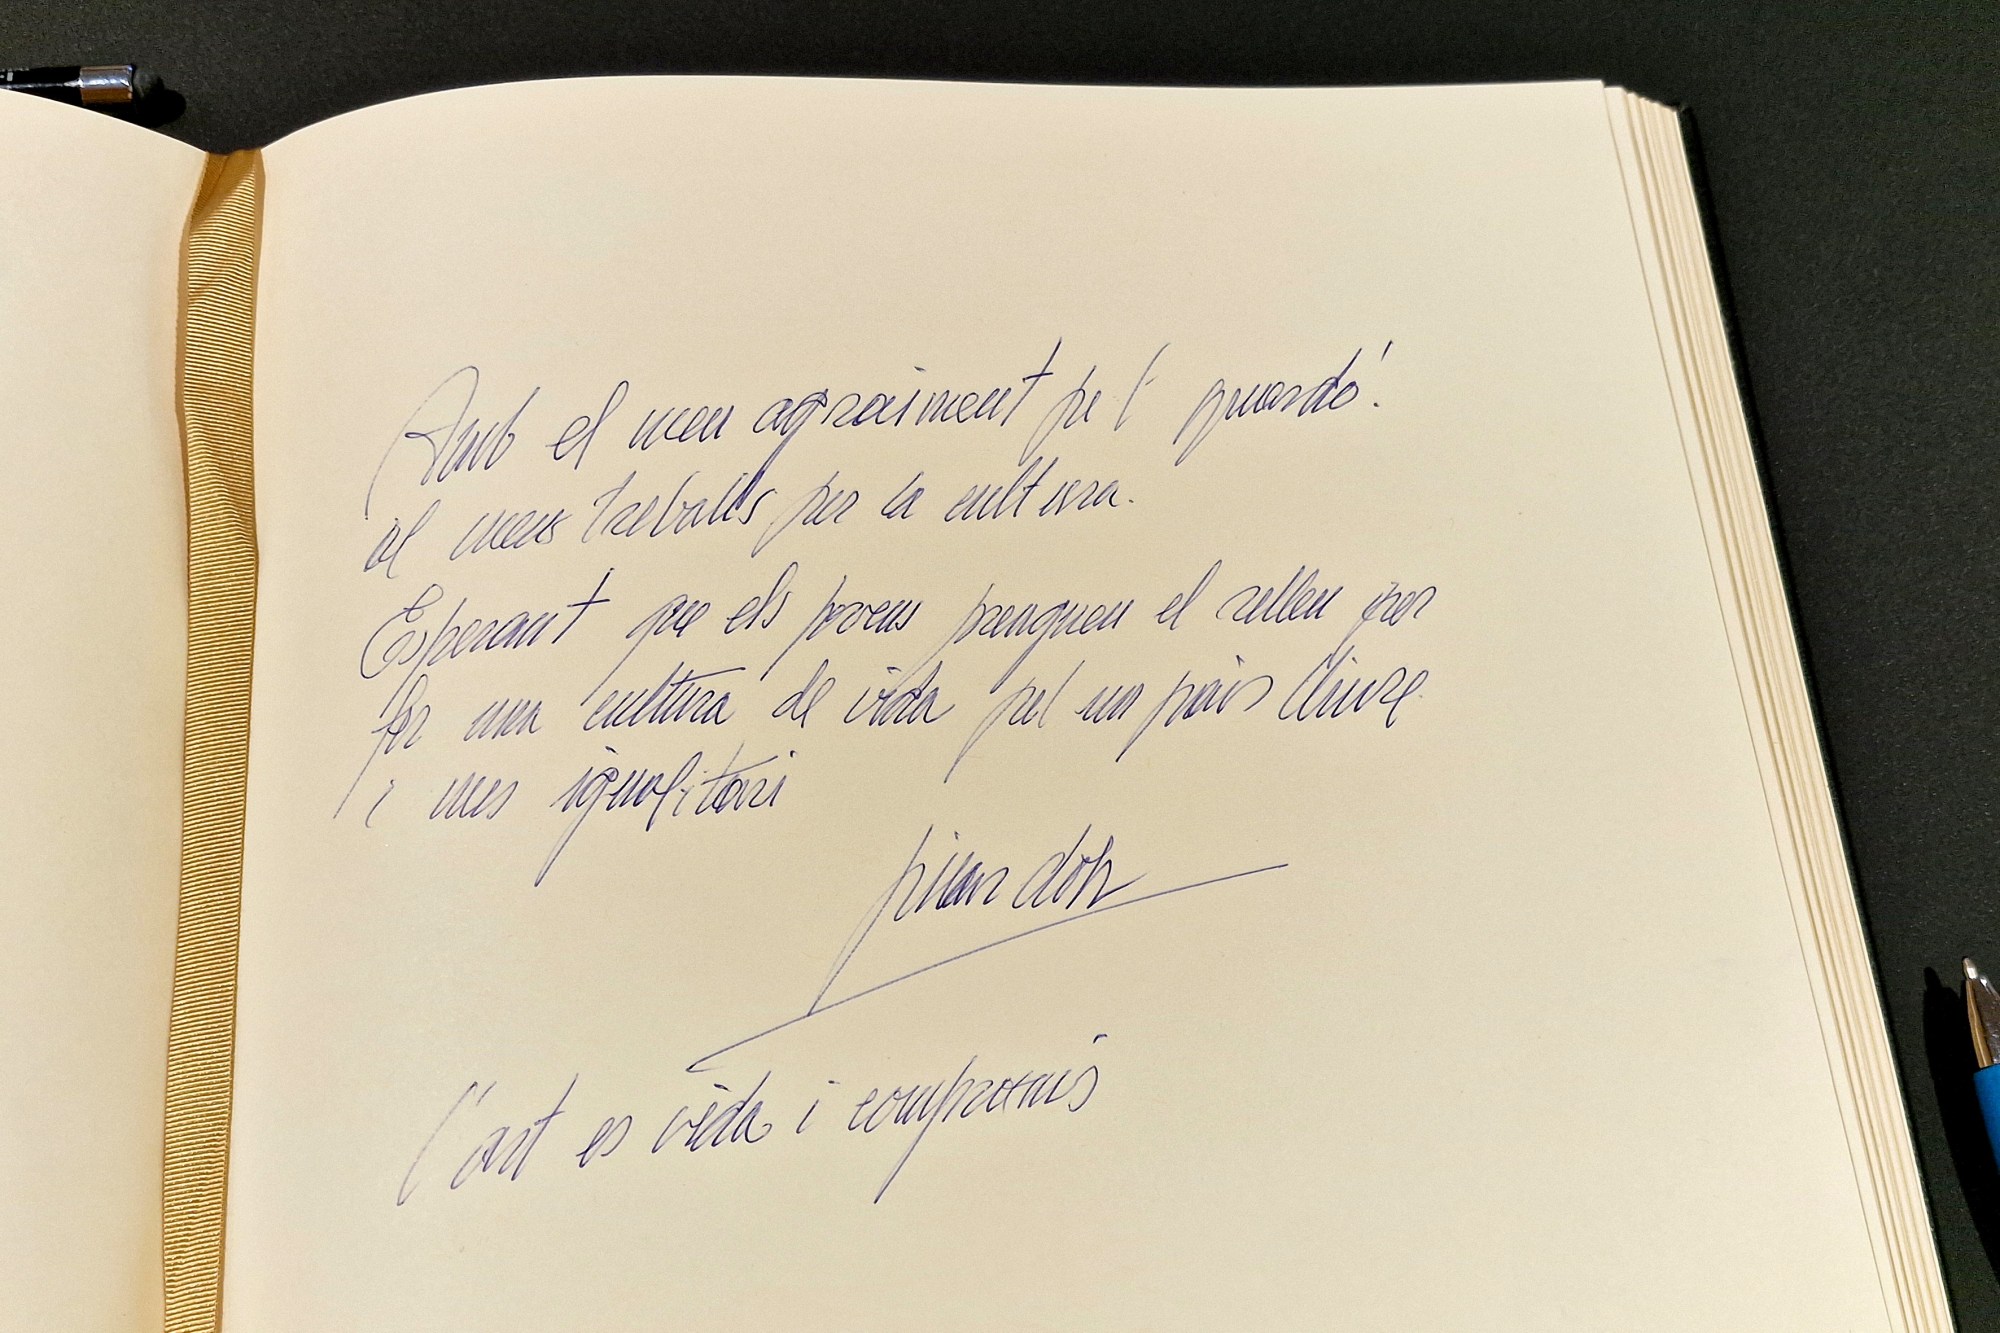 Amb el meu agraiment pe l' guardó.
al meus treballs per la cultura.
Esperant que els jovens prenguen el relleu per
fer una cultura de vida pel un pais lliure
i mes igualitari
L'art es vida i compromis